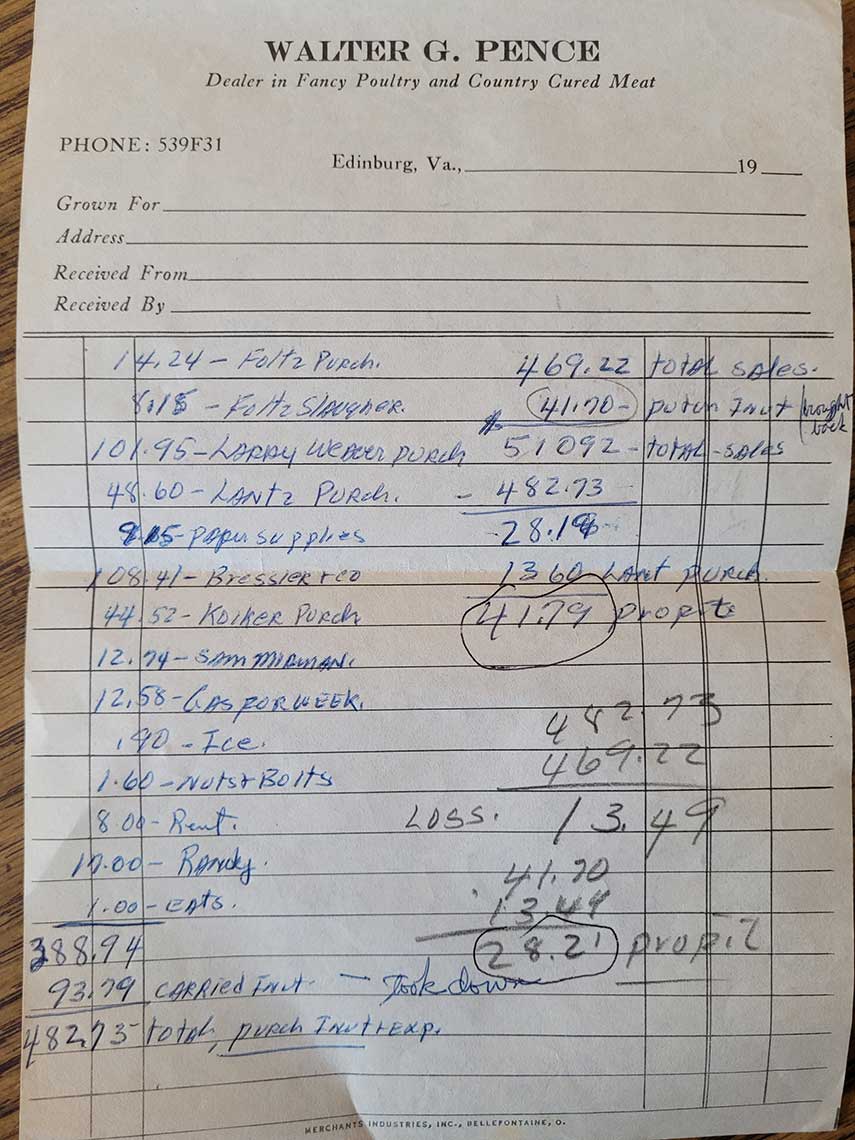 WALTER G. PENCE
Dealer in Fancy Poultry and Country Cured Meat
PHONE: 539F31
Edinburg, Va., 19
Grown For
Address
Received From
Received By
14.24 - Foltz Purch. 469.22 total sales.
8.15 - Foltz Slaugher. 41.70 - purch Inut (brought back
101.95 - LARRY WEAVER purch $51092 - total - sales
48.60 - LANTZ PURCH. - 482.73
9.15 - papu supplies 28.19
108.41 - Bressler + co 1360 LANT purch.
44.52 - Koiker Purch 41.79 propit
12.74 - SAM MIRMAN.
12.58 - GAS POR WEEK. 482.73
.90 - Ice. 469.22
1.60 - Nuts + Bolts
8.00 - Rent. LOSS. 13.49
17.00 - Randy. 41.70
1.00 - EATS. 13.49
388.94 28.21 propit
93.79 CARRIED Inut. - Took down
482.73 total, purch Inut + exp.
MERCHANTS INDUSTRIES, INC., BELLEFONTAINE, O.